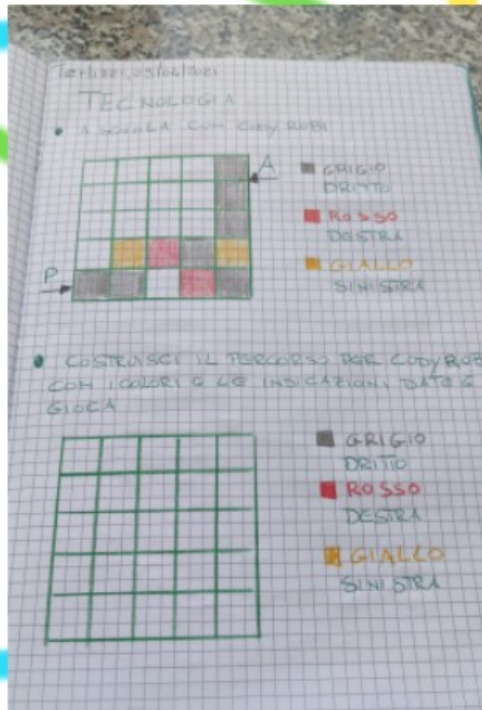 Terlizzi, 03/04/2021
TECNOLOGIA
A SCUOLA CON CODY ROBY
A
GRIGIO
DRITTO
ROSSO
DESTRA
GIALLO
SINISTRA
P
COSTRUISCI IL PERCORSO PER CODYROB
CON I COLORI E LE INDICAZIONI DATE E
GIOCA
GRIGIO
DRITTO
ROSSO
DESTRA
GIALLO
SINISTRA